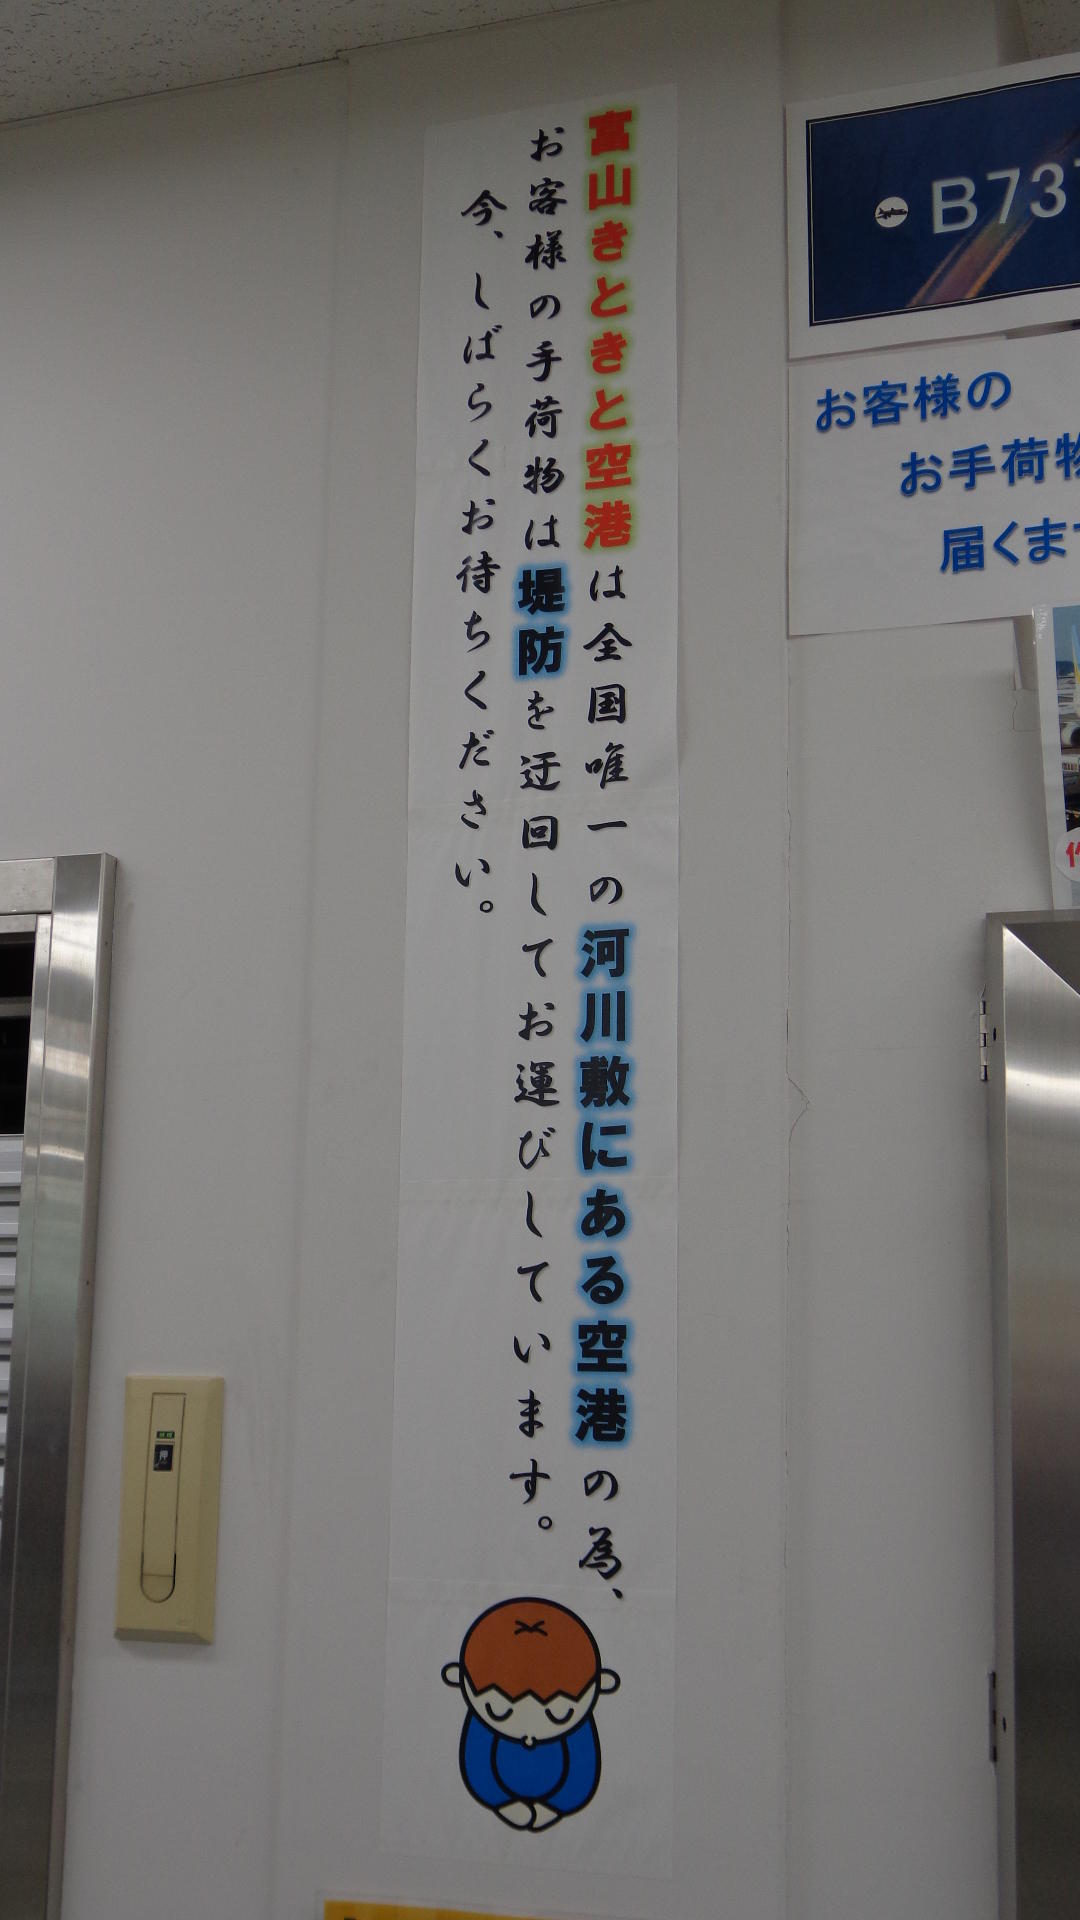 富山きときと空港は全国唯一の河川敷にある空港の為、
お客様の手荷物は堤防を迂回してお運びしています。
今、しばらくお待ちください。
B737
お客様の
お手荷物
届くま